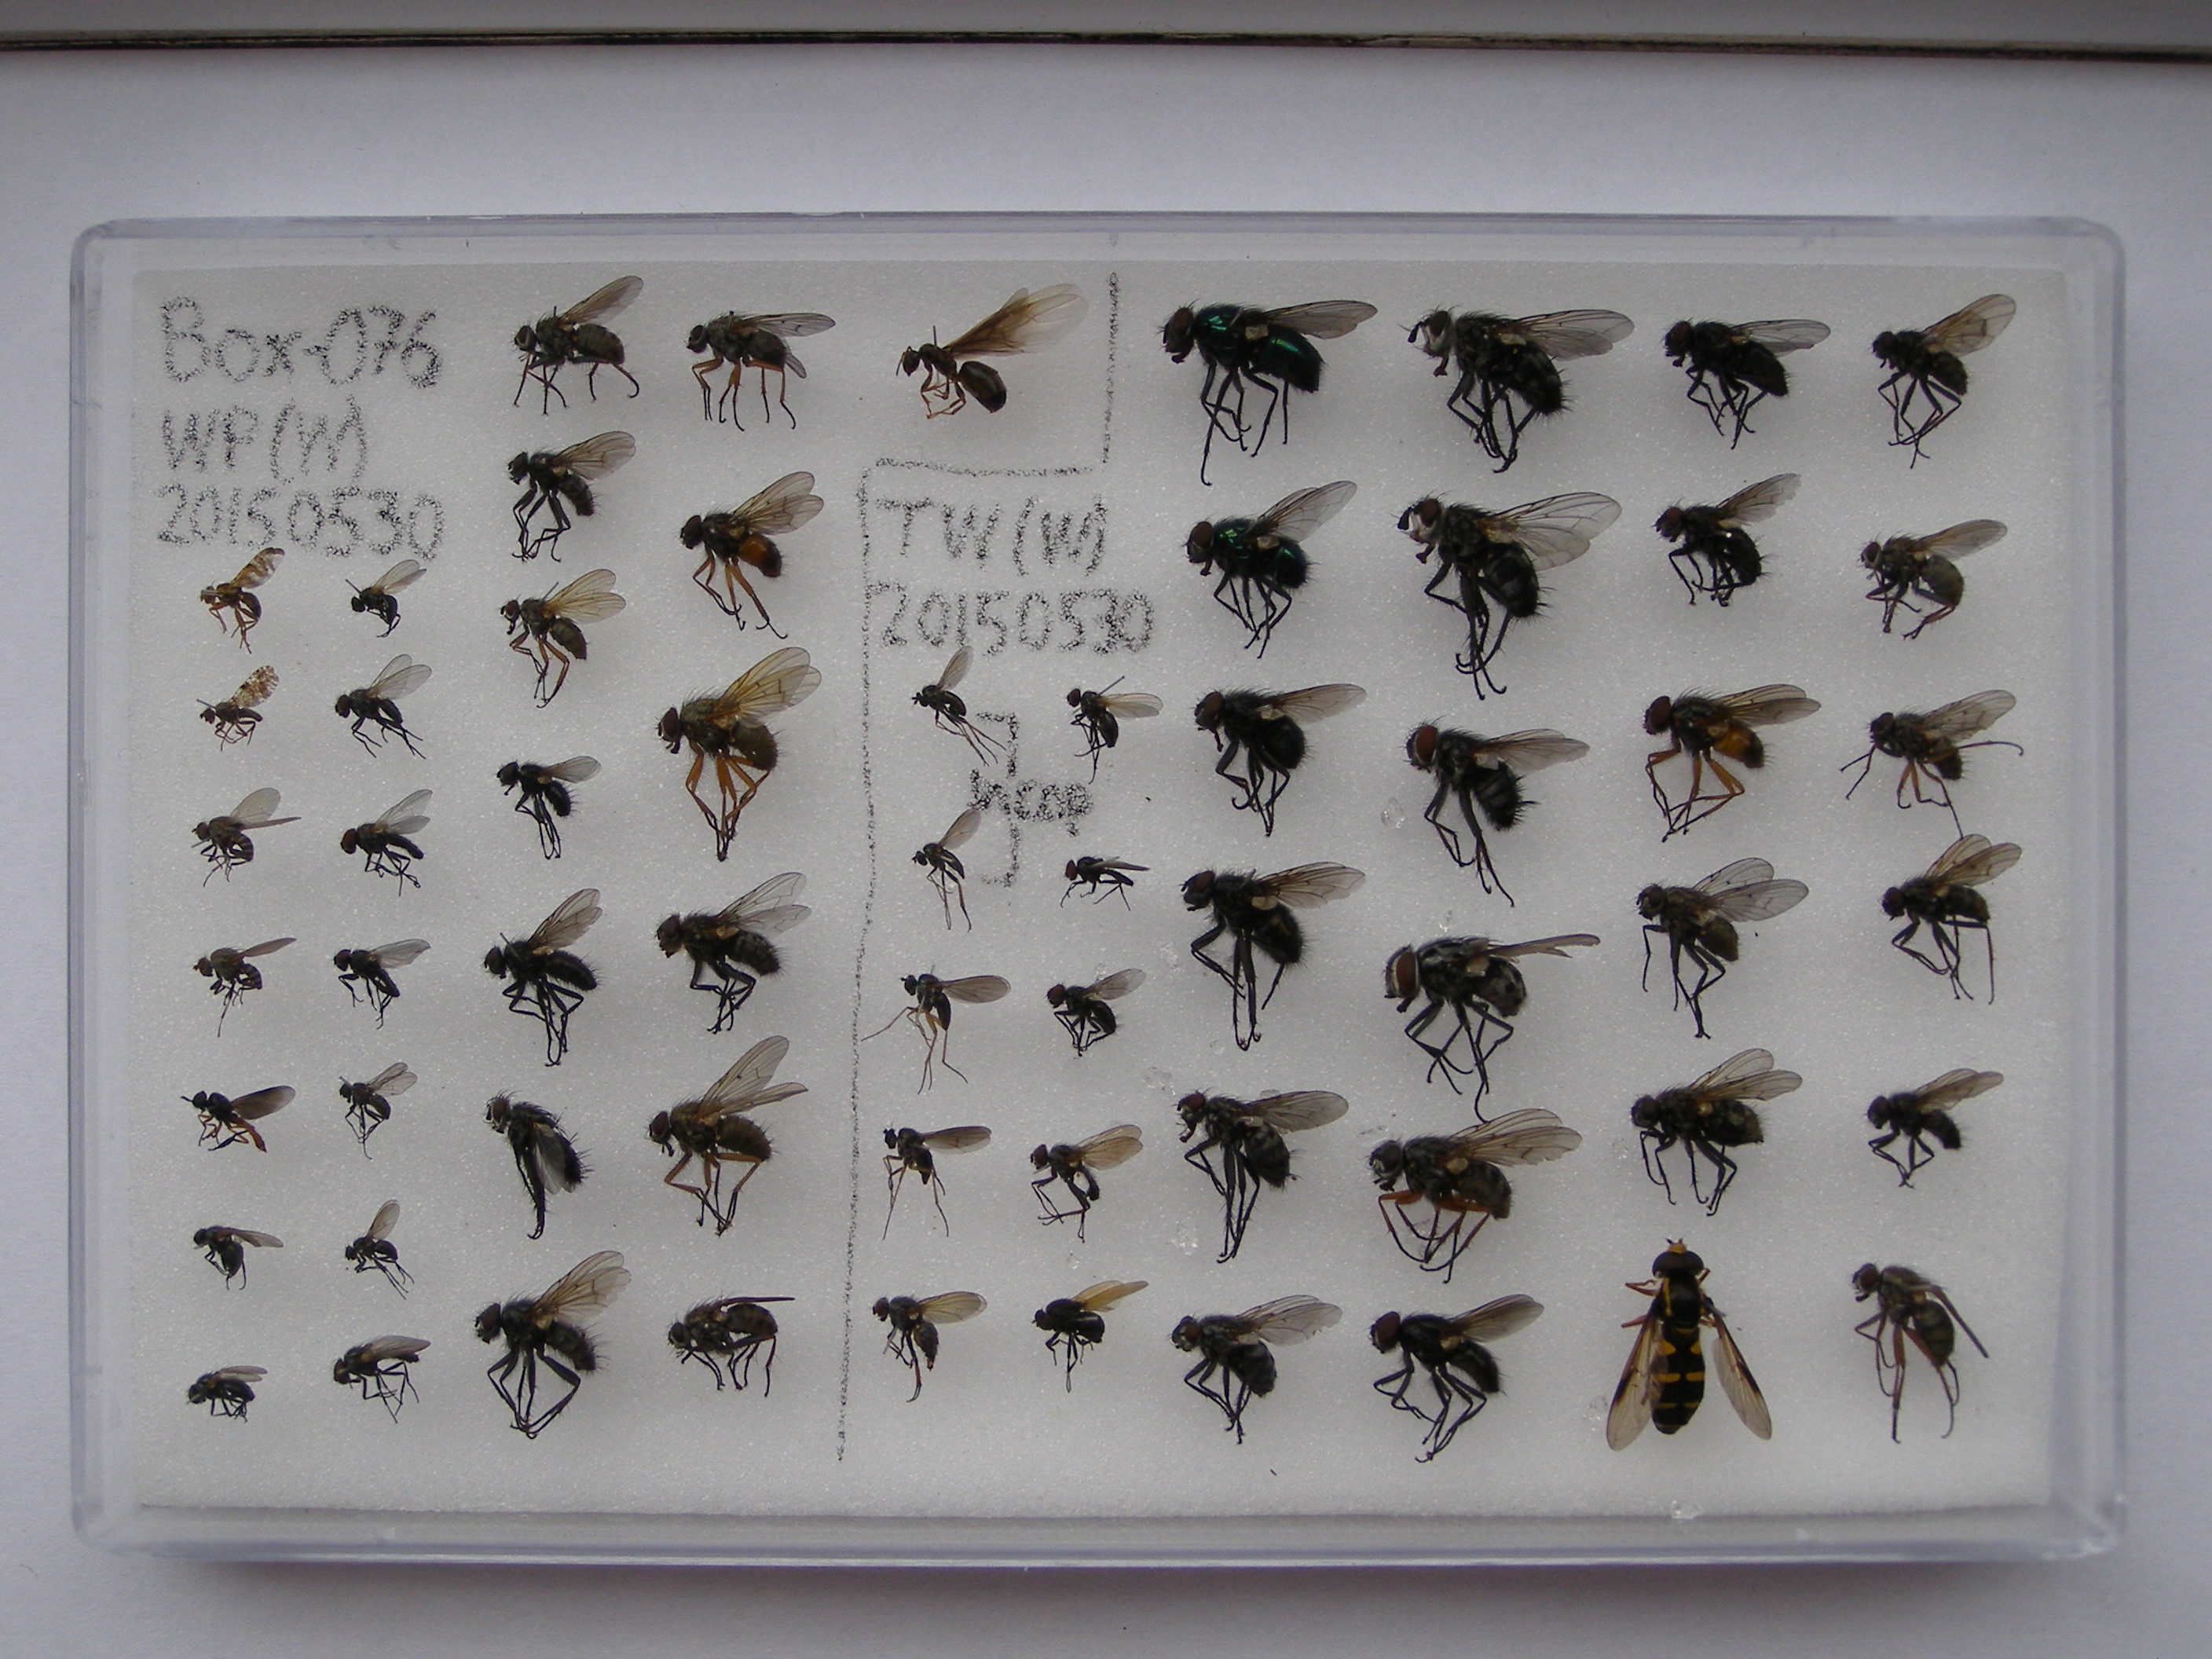 Box-076
WP(M)
20150530
TW(M)
20150530